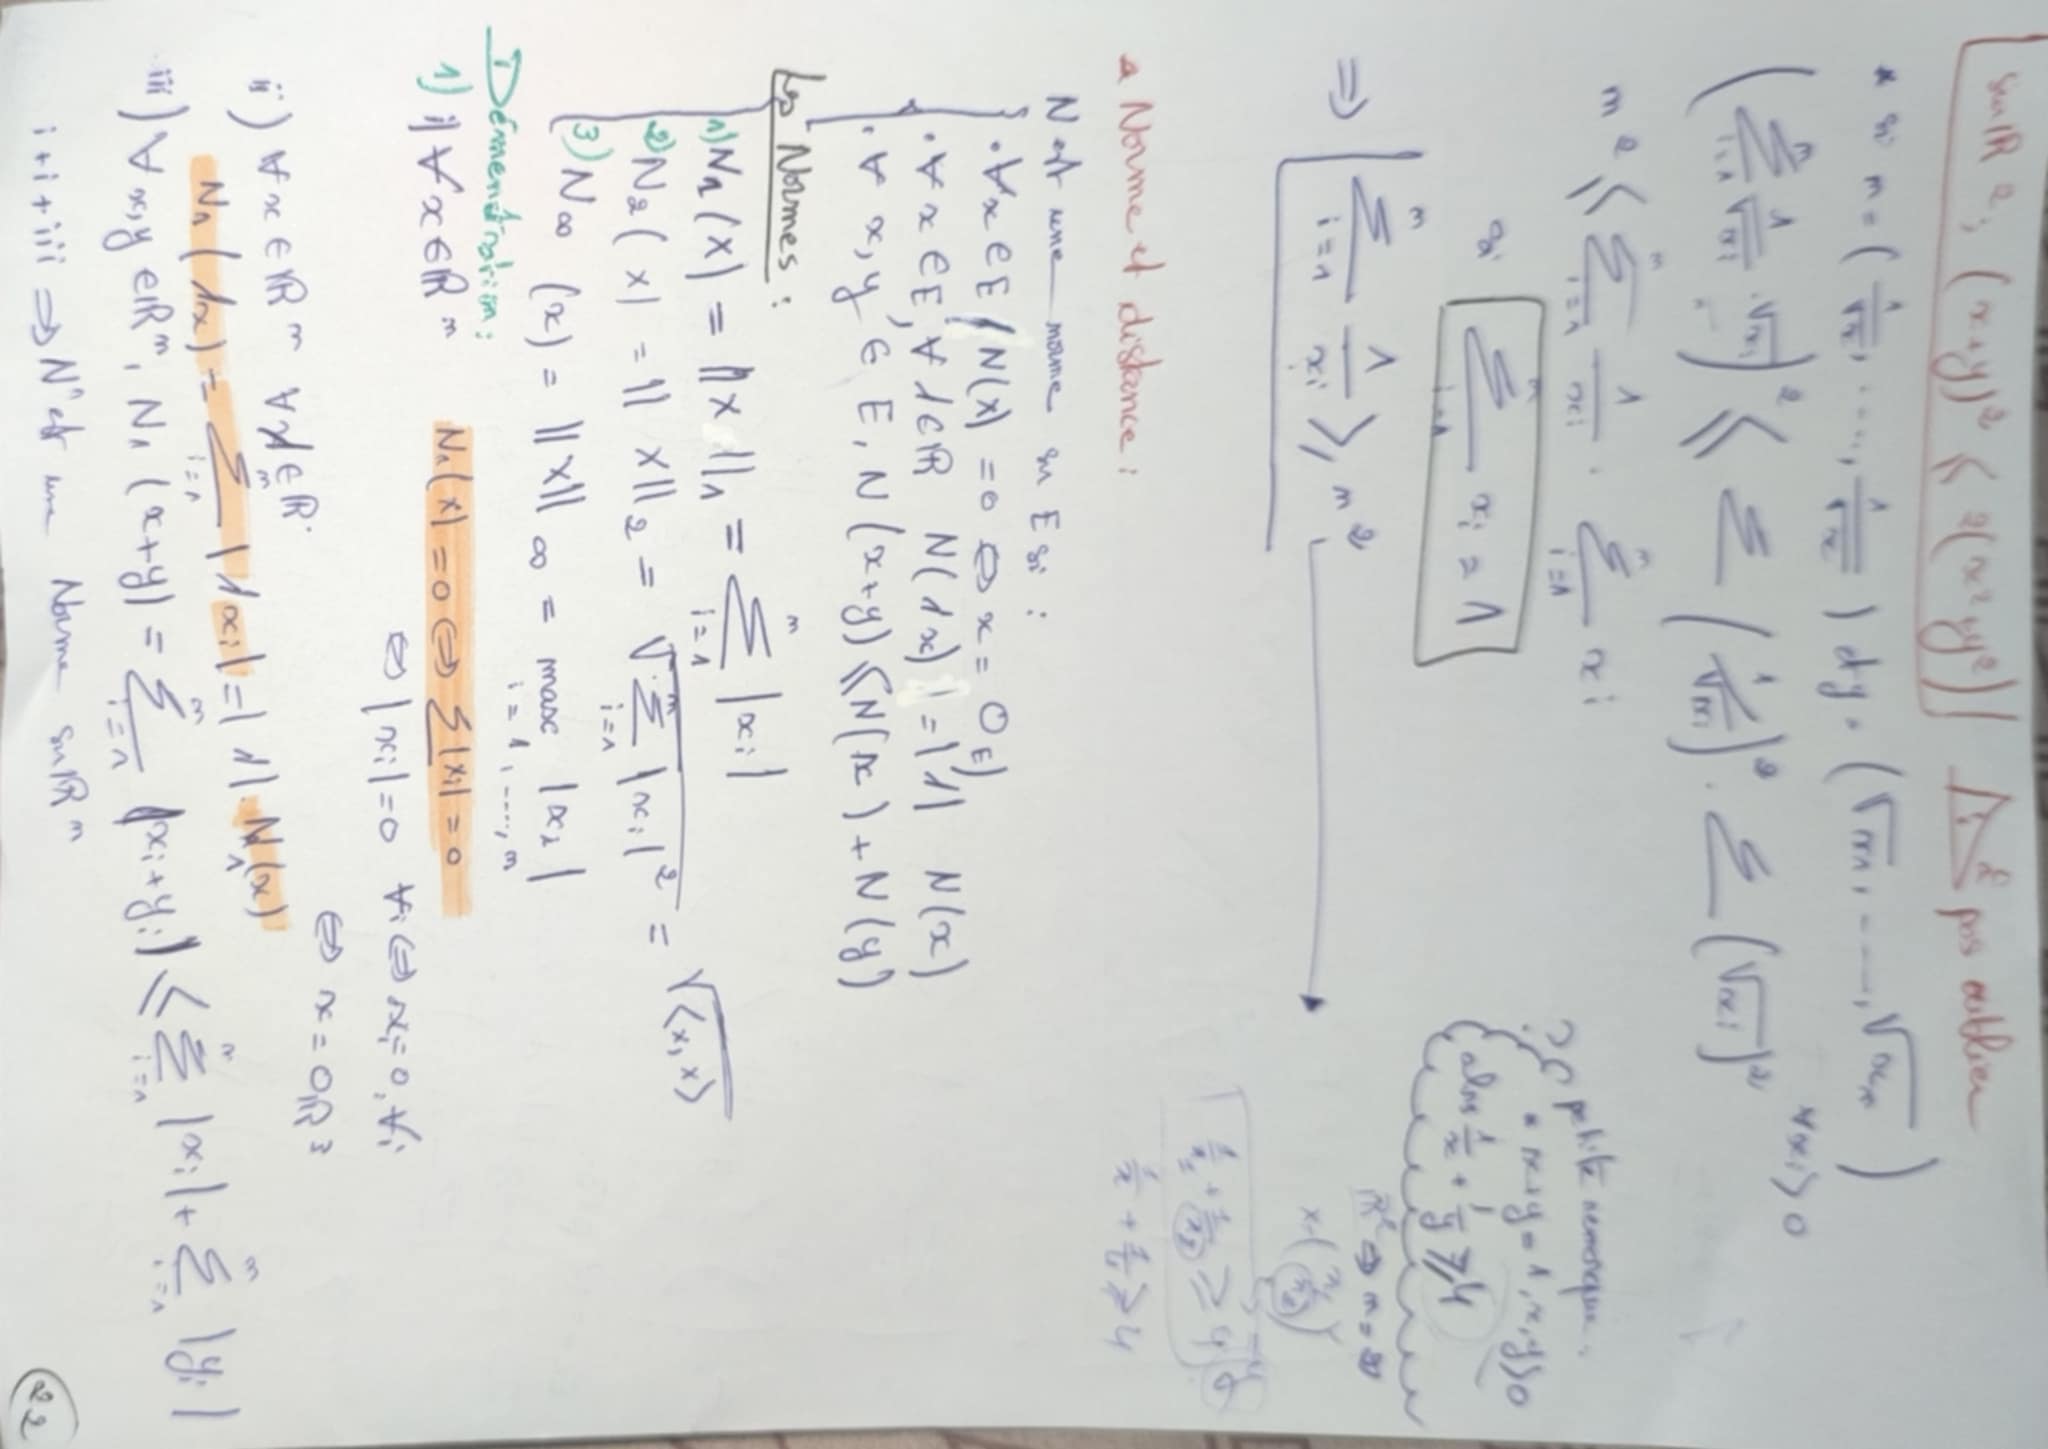 sur IR 2, (x+y)² ⩽ 2(x²+y²) pas oublier
* si x = ( 1/√x, ....., 1/√x ) et y = ( √x1, ----, √xn )
∀xi > 0
( Σ i=1 n 1/√xi . √xi )² ⩽ Σ ( 1/√xi )² . Σ ( √xi )²
n² ⩽ Σ i=1 n 1/xi . Σ i=1 n xi
si Σ i=1 n xi = 1
⇒ Σ i=1 n 1/xi ⩾ n²
?? petite remarque.
* x+y = 1, x, y > 0
alors 1/x + 1/y ⩾ 4
R² ⇒ n = 2
x = ( x1 x2 )
→ y
1/x1 + 1/x2 ⩾ 4
1/x + 1/y ⩾ 4
Norme et distance :
N est une norme sur E si :
. ∀x ∈ E ( N(x) = 0 ⇔ x = 0E )
. ∀ x ∈ E, ∀ λ ∈ IR N(λx) = |λ| N(x)
. ∀ x, y ∈ E, N(x+y) ⩽ N(x) + N(y)
Les Normes :
1) N1(x) = ||x||1 = Σ i=1 n |xi|
2) N2(x) = ||x||2 = √ Σ i=1 n |xi|² = √<x, x>
3) N∞ (x) = ||x||∞ = max |xi| i = 1, ....., n
Démonstration :
1) i) ∀ x ∈ IR n N1(x) = 0 ⇔ Σ |xi| = 0
⇔ |xi| = 0 ∀i ⇔ xi = 0, ∀i
⇔ x = 0IR 3
ii) ∀ x ∈ IR n ∀ λ ∈ IR
N1(λx) = Σ i=1 n |λxi| = |λ|. N1(x)
iii) ∀ x, y ∈ IR n, N1(x+y) = Σ i=1 n |xi + yi| ⩽ Σ i=1 n |xi| + Σ i=1 n |yi|
i + i + iii ⇒ N est une Norme sur IR n
22